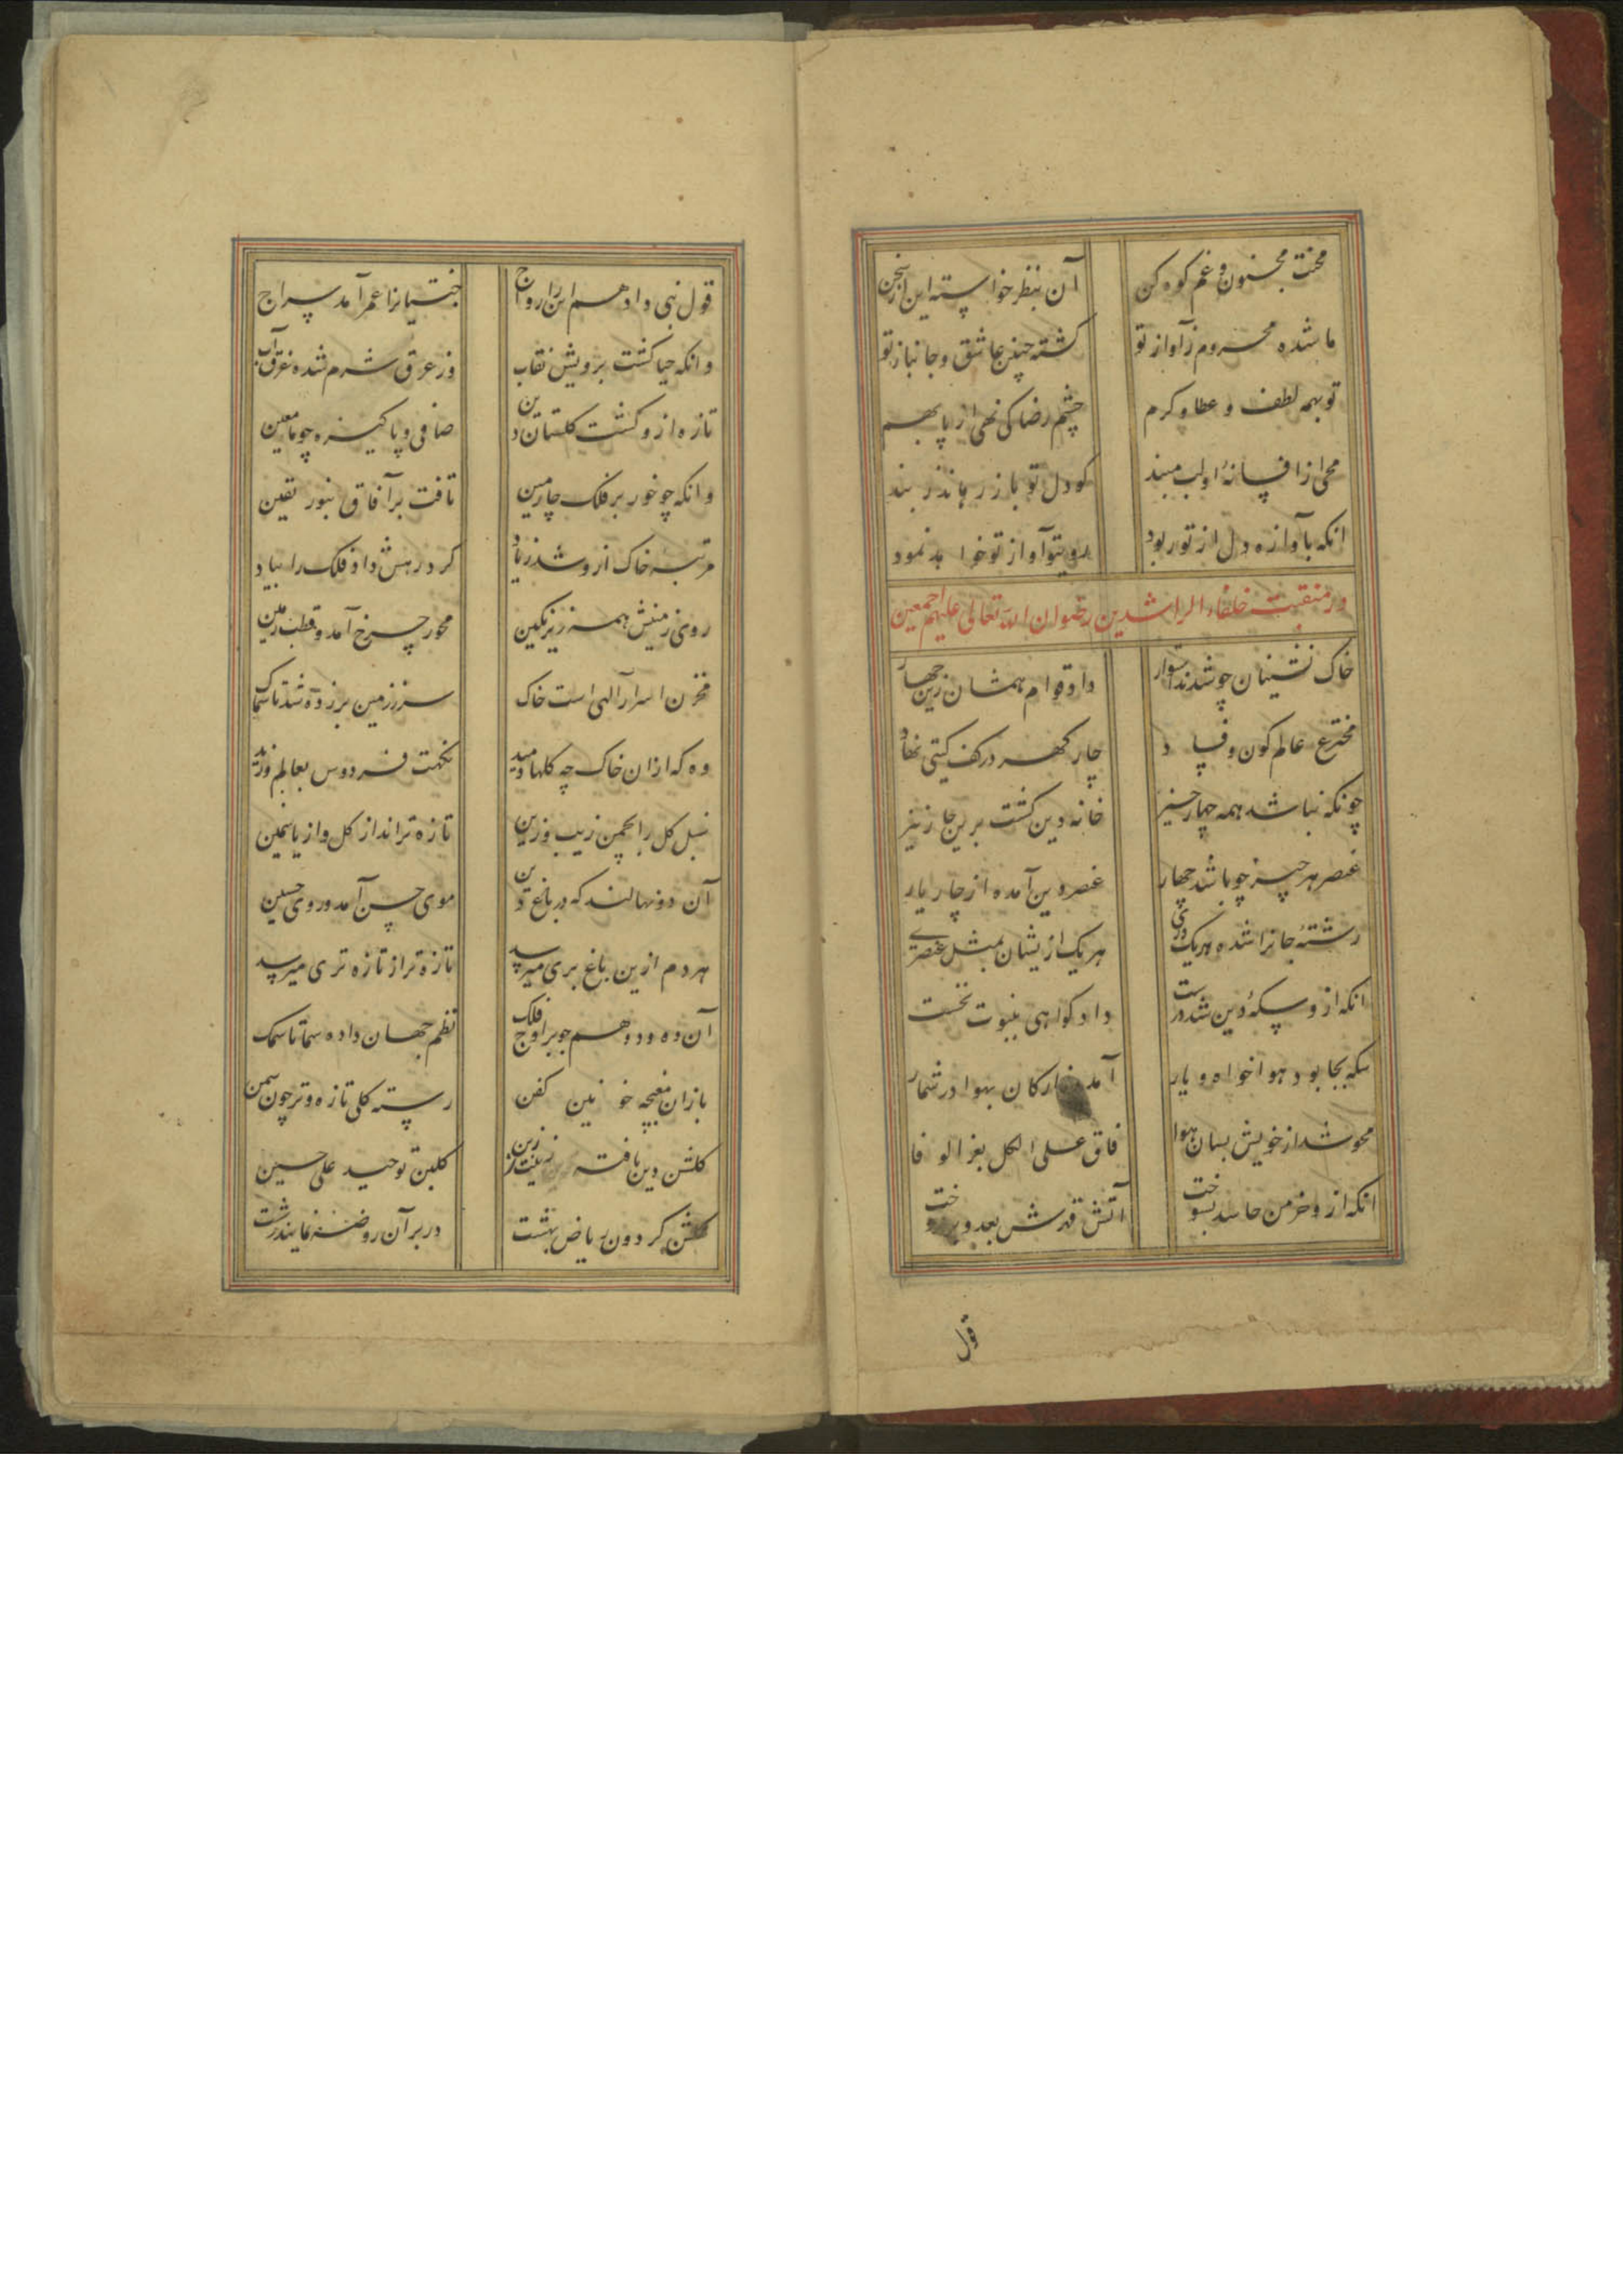 محنت مجنون و غم کوه کن آن بنظر خواسته این از سخن
ما شده محروم ز آواز تو کشته چنین عاشق و جانباز تو
تو بهمه لطف و عطا و کرم چشم رضا کی نهی از پا بهم
محی از افسانهٔ او لب مبند کو دل تو باز رهاند ز بند
انکه بآوازه دل از تو ربود رو بتو آواز تو خواهد نمود
در منقبت خلفاء الراشدین رضوان الله تعالی علیهم اجمعین
خاک نشینان چو شدند استوار داد قوام همشان زین چهار
مخترع عالم کون و فساد چار کهر در کف کیتی نهاد
چونکه نباشد همه چهار چیز خانه دین کشت برین چار نیز
عنصر هر چیز چو باشد چهار عنصر دین آمده از چار یار
رشتهٔ جانرا شده هر یک دری هر یک ازیشان بمثل عنصری
انکه ازو سکهٔ دین شد درست داد کواهی بنبوت نخست
سکه بجا بود هوا خواه و یار آمد ز ارکان بهوا در شمار
محو شد از خویش بسان هوا فاق علی الکل بعز الوفا
انکه ازو خرمن حاسد بسوخت آتش قهرش بعدو برفروخت
قول
قول نبی داد هم این را رواج جنتیانرا عمر آمد سراج
وانکه حیا کشت برویش نقاب وز عرق شرم شده غرق آب
تازه ازو کشت کلستان دین صافی و پاکیزه چو ماء معین
وانکه چو خور بر فلک چارمین تافت بر آفاق بنور یقین
مرتبه خاک ازو شد زیاد کرد رهش داد فلک را بباد
روی زمینش همه زیر نکین محور چرخ آمد و قطب زمین
مخزن اسرار الهی است خاک سر ز زمین بر زده شد تا سماک
وه که ازان خاک چه کلها دمید نکهت فردوس بعالم وزید
سنبل کل را بچمن زیب و زین تازه تراند از کل و از یاسمین
آن دو نهالند که در باغ دین موی حسن آمد و روی حسین
هر دم ازین باغ بری میرسد تازه تر از تازه تری میرسد
آن ده و دو هم چو بر اوج فلک نظم جهان داده سما تا سمک
باز ان غنچه خونین کفن رسته کلی تازه و تر چون سمن
کلشن دین یافته زینت زین کلبن توحید علی حسین
کلشن کردون ریاض بهشت در بر آن روضه نمایند زشت